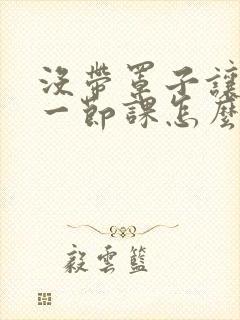 沒帶罩子讓
一節課怎麼
毅雲籃